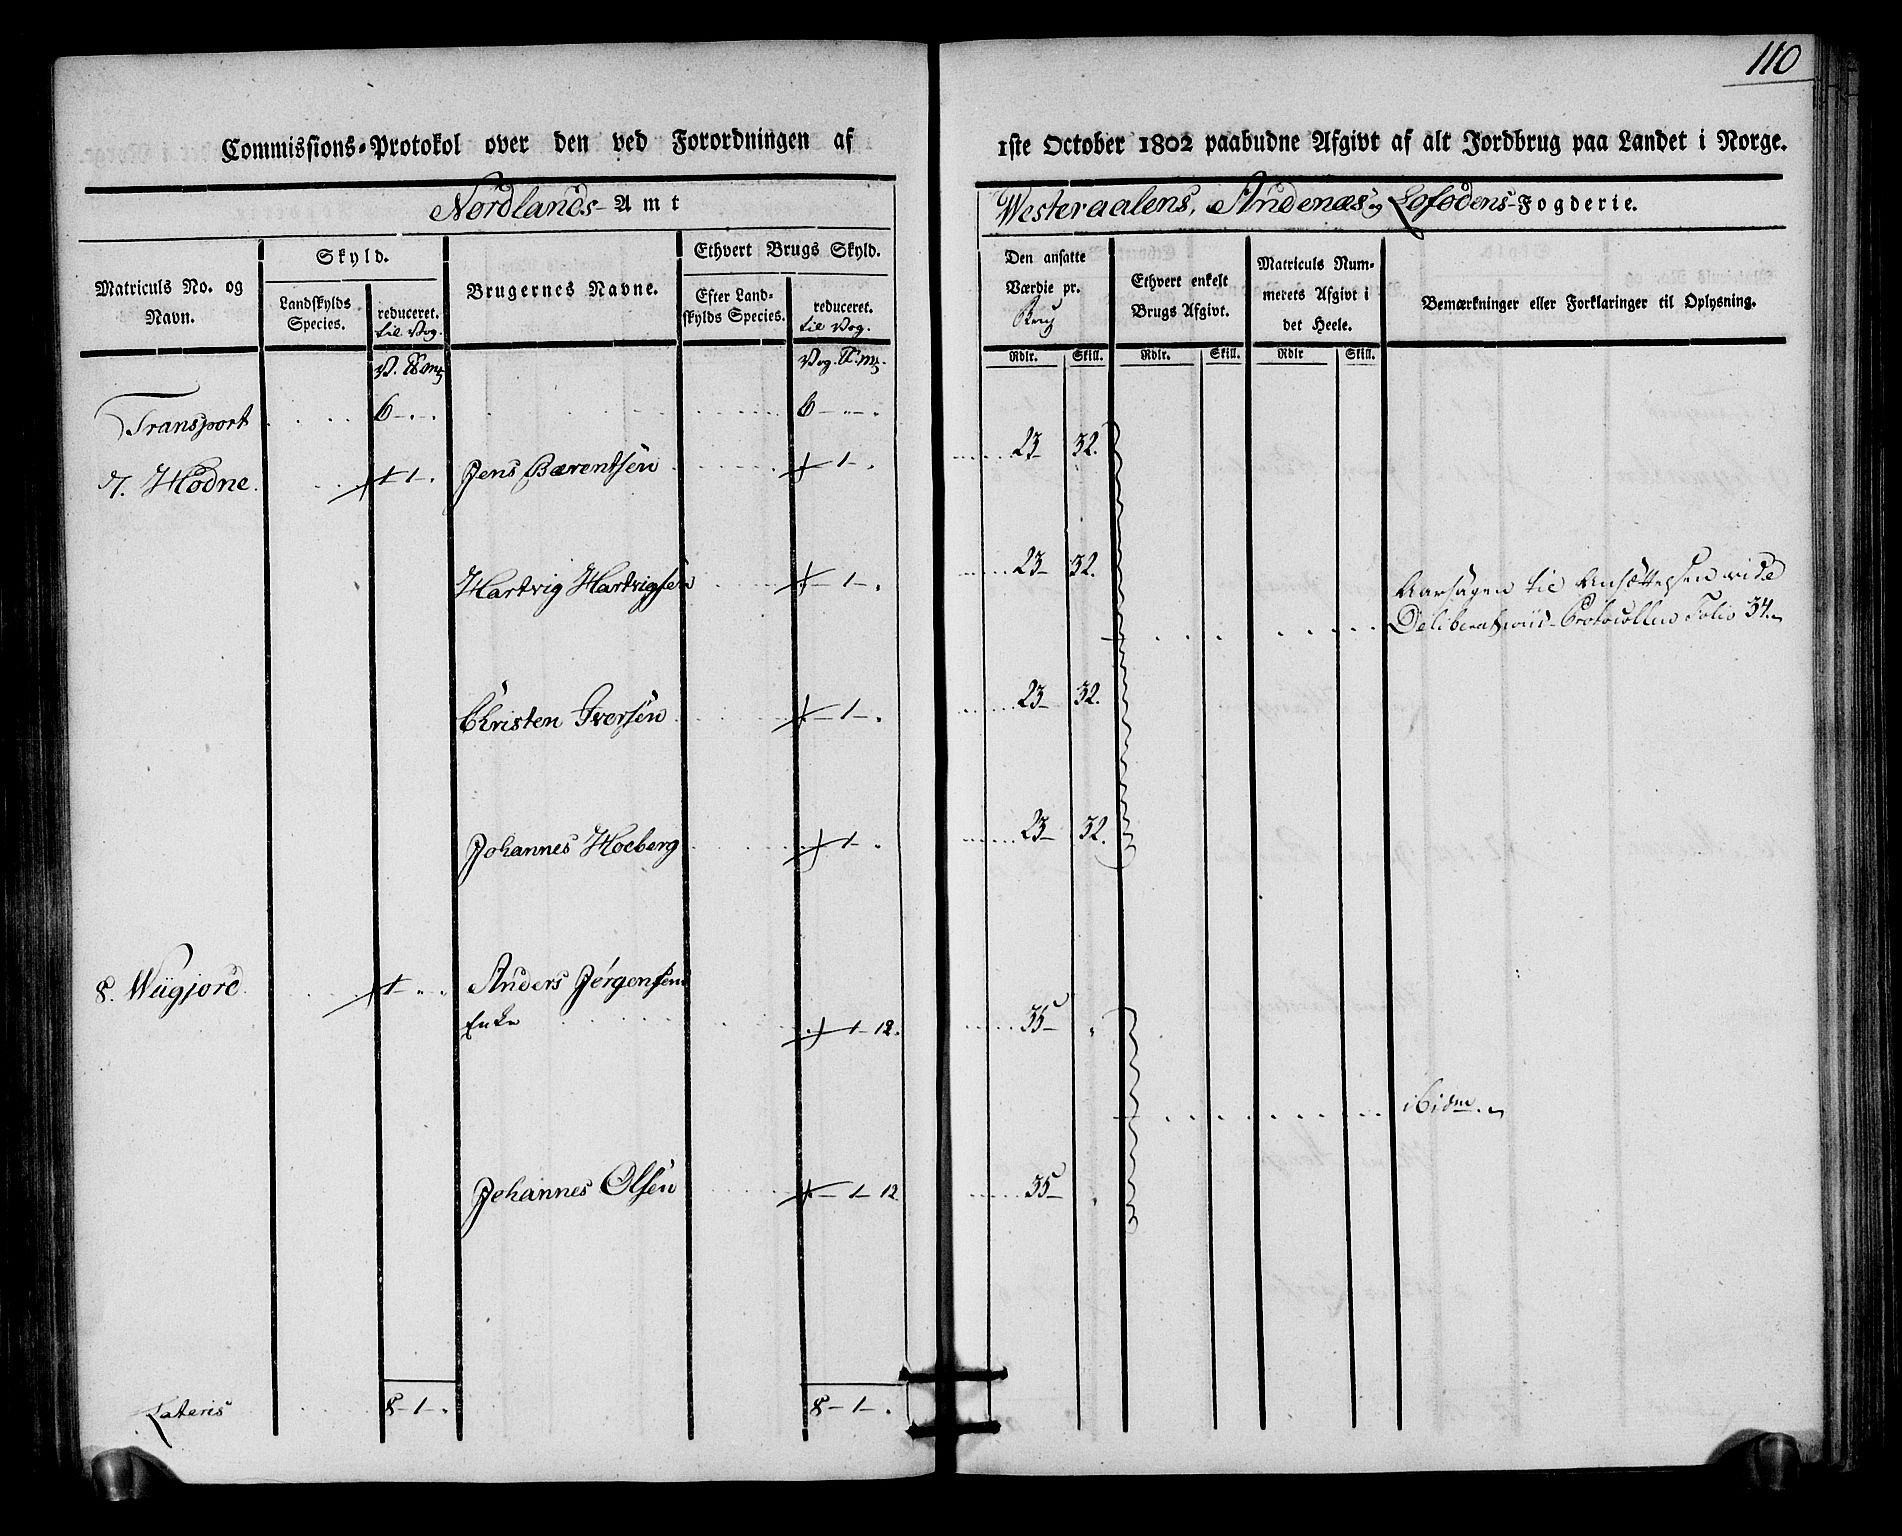 110
Commissions-Protokol over den ved Forordningen af
1ste October 1802 paabudne Afgivt af alt Jordbrug paa Landet i Norge.
Nordlands-Amt
Westeraalens, Andenæs og Lofodens-Fogderie.
Matriculs No. og Navn.
Skyld.
Landskylds Species.
reduceret. til Vog.
Brugernes Navne.
Ethvert Brugs Skyld.
Efter Landskylds Species.
reduceret. til Vog.
Den ansatte Værdie pr.
Ethvert enkelt Brugs Afgivt.
Matriculs Nummerets Afgivt i det Heele.
Bemærkninger eller Forklaringer til Oplysning.
Rdlr. Skill. Rdlr. Skill. Rdlr Skill.
Transport 6 - - 6 - -
7. Hodne 1 1 Jens Bærentsen 1 23 32.
Hartvig Hartvigsen 1 23 32.
Aarsagen til Ansættelsen vide
Deliberations-Protocollen Folio 34.
Christen Iversen 1 23 32.
Johannes Hoeberg 1 23 32.
8. Wügjord 1 Anders Jörgensens
Enke 1 12. 35
ibidm.
Johannes Olsen 1 12 35
Lateris 8-1 8-1